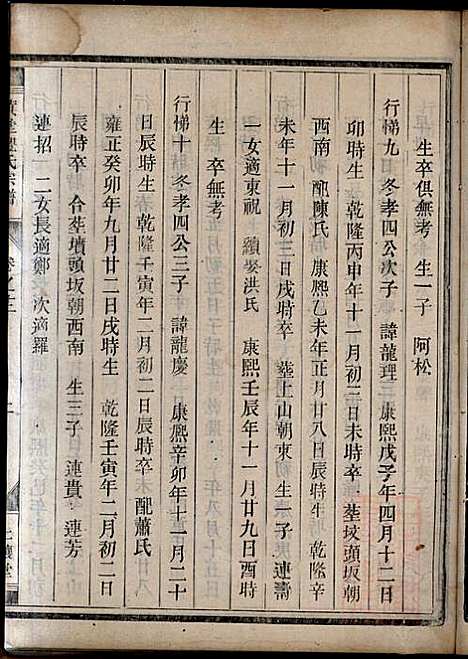 生卒俱無考 生一子 阿松
行悌九 冬孝四公次子 諱龍理 康熙戊子年四月十二日
卯時生 乾隆丙申年十一月初二日未時卒 塟坟頭坂朝
西南 配陳氏 康熙乙未年正月廿八日辰時生 乾隆辛
未年十一月初三日戌時卒 塟上山朝東 生一子 連壽
一女適東祝 續娶洪氏 康熙壬辰年十一月廿九日酉時
生 卒無考
行悌十 冬孝四公三子 諱龍慶 康熙辛卯年十一月二十
日辰時生 乾隆壬寅年二月初二日辰時卒 配蕭氏
雍正癸卯年九月廿二日戌時生 乾隆壬寅年二月初二日
辰時卒 合塟墳頭坂朝西南 生三子 連貴 連芳
連招 二女長適鄭 次適羅
氏宗譜
卷之
二